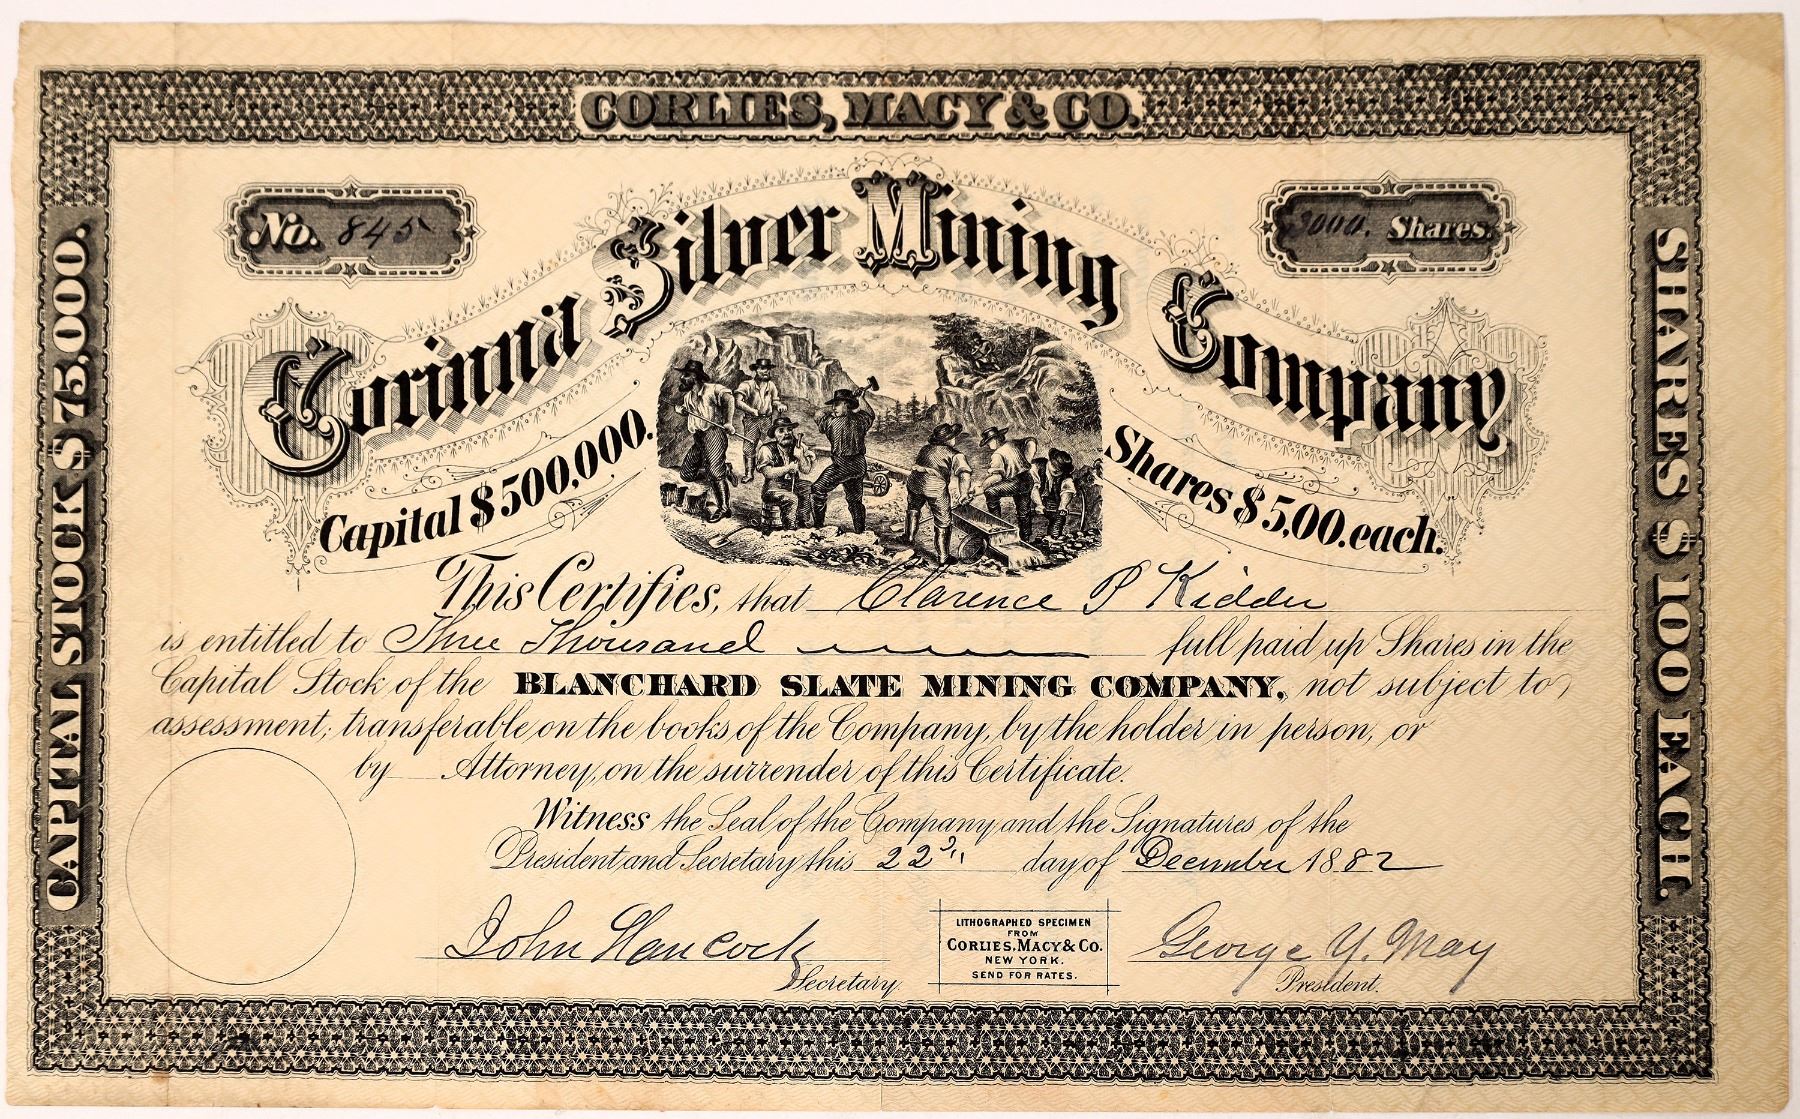 CORLIES, MACY & CO.
CAPITAL STOCK $75,000.
SHARES $100 EACH.
No. 845
3000. Shares.
Corinna Silver Mining Company
Capital $500,000.
Shares $5,00. each.
This Certifies, that Clarence P Kidder
is entitled to Three Thousand full paid up Shares in the
Capital Stock of the BLANCHARD SLATE MINING COMPANY, not subject to
assessment; transferable on the books of the Company, by the holder in person, or
by Attorney, on the surrender of this Certificate.
Witness the Seal of the Company and the Signatures of the
President and Secretary this 22d day of December 1882
John Hancock
Secretary.
LITHOGRAPHED SPECIMEN
FROM
CORLIES, MACY & CO.
NEW YORK.
SEND FOR RATES.
George Y. May
President.